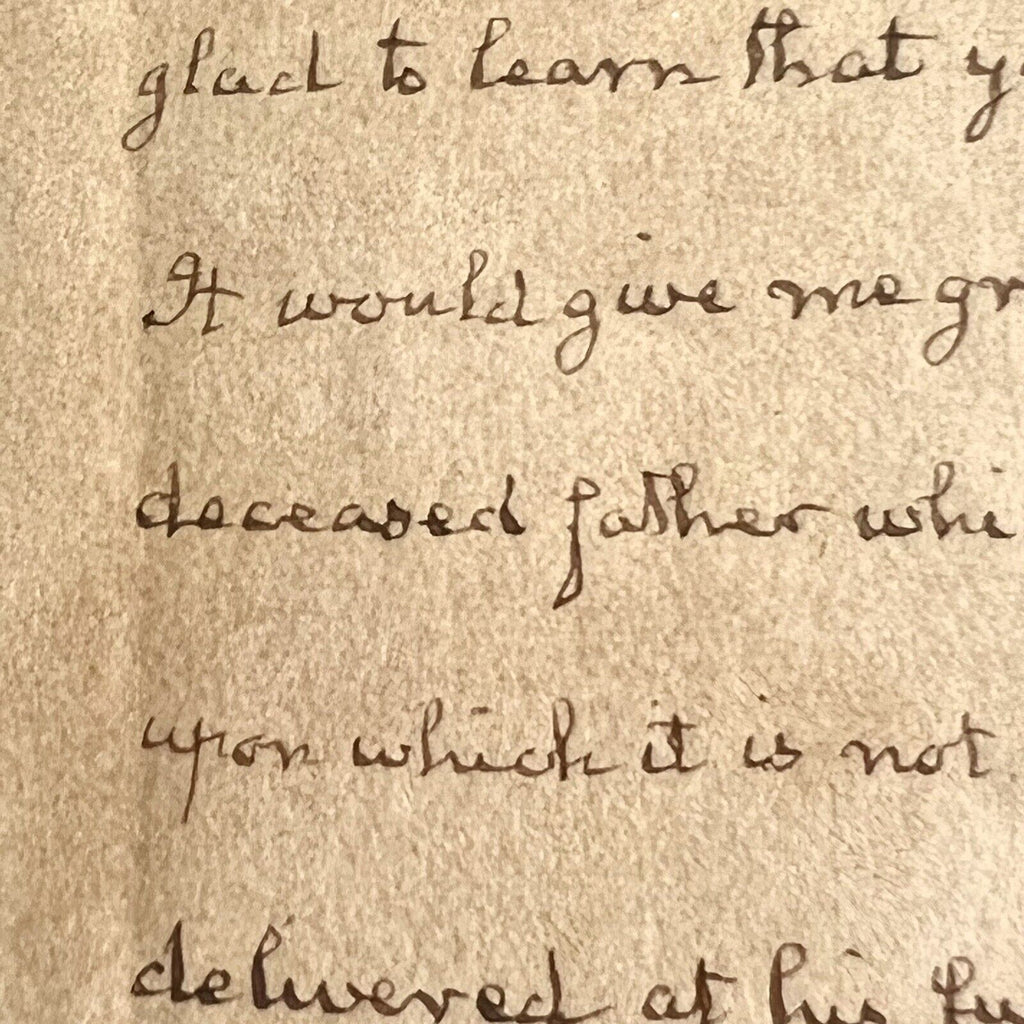 glad to learn that y
It would give me gr
deceased father whi
upon which it is not
delivered at his fu